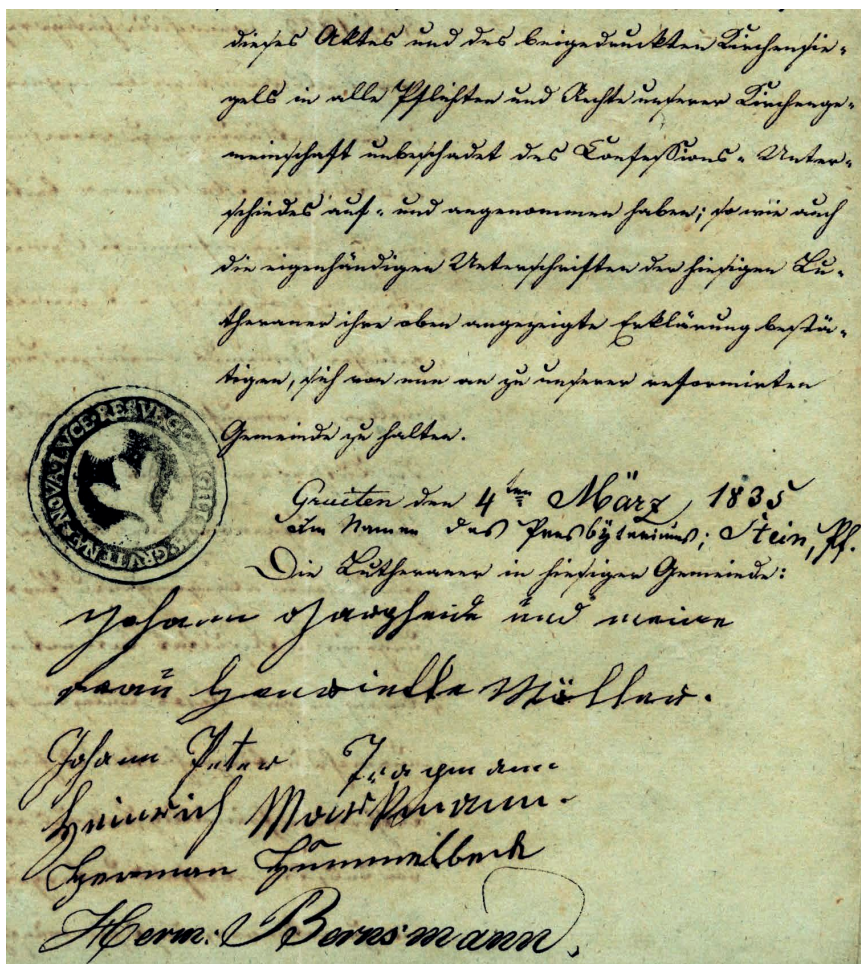 dieses Aktes und des beigedruckten Kirchensie-
gels in alle Pflichten und Rechte unserer Kirchenge-
meinschaft unbeschadet des Confessions-Unter-
schiedes auf- und angenommen haben; so wie auch
die eigenhändigen Unterschriften der hiesigen Lu-
theraner ihre oben angezeigte Erklärung bestä-
tigen, sich von nun an zu unserer reformirten
Gemeinde zu halten.
NOVA LVCE RESVRGO
Gruiten den 4ten März, 1835
Im Namen des Presbyteriums; Stein, Pf.
Die Lutheraner in hiesiger Gemeinde:
Johann und meine
Frau Henriette Möller.
Johann Peter Tragmann
Heinrich
Herman Hummelbeck
Herm: Bernsmann.